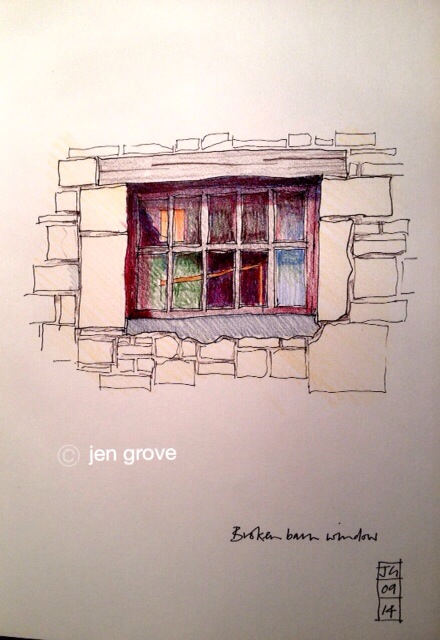 © jen grove
Broken barn window
JG
09
14